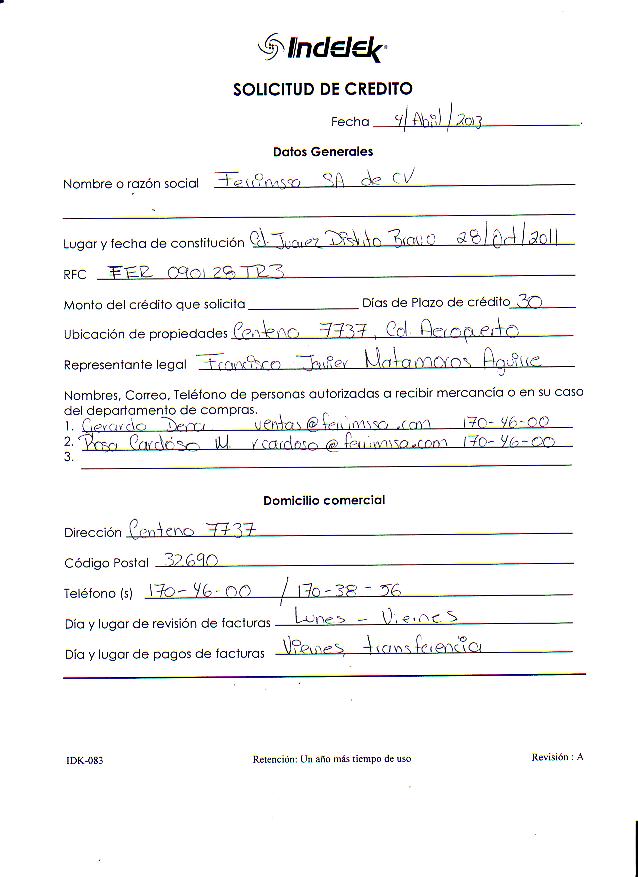 Indelek
SOLICITUD DE CREDITO
Fecha 4/Abril/2013
Datos Generales
Nombre o razón social Ferrimsso SA de CV
Lugar y fecha de constitución Cd. Juarez Distrito Bravo 28/Oct/2011
RFC FER 090128TR3
Monto del crédito que solicita Días de Plazo de crédito 30
Ubicación de propiedades Centeno 7737, Col. Aeropuerto
Representante legal Francisco Javier Matamoros Aguirre
Nombres, Correo, Teléfono de personas autorizadas a recibir mercancía o en su caso
del departamento de compras.
1. Gerardo ventas@ferrimsso.com 170-46-00
2. Rosa Cardoso M. rcardoso@ferrimsso.com 170-46-00
3.
Domicilio comercial
Dirección Centeno 7737
Código Postal 32690
Teléfono (s) 170-46-00 / 170-38-56
Día y lugar de revisión de facturas Lunes - Viernes
Día y lugar de pagos de facturas Viernes, transferencia
IDK-083 Retención: Un año más tiempo de uso Revisión : A